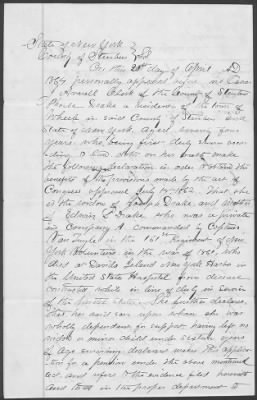 State of New York }
County of Steuben } SS
On this 28th day of April A D
1869 personally appeared before me
Clerk of the County of Steuben
Drake a resident of the town of
Wheeler in said County of Steuben and
State of New York. Aged seventy four
years who being first duly sworn accor-
ding to law doth on her oath make
the following declaration in order to obtain the
benefits of the provisions made by the act of
Congress approved July 14th 1862. That she
is the widow of Drake and mother
of Edwin Drake who was a private
in Company A commanded by Captain
in the 161st Regiment of New
York Volunteers in the war of 1861, who
died at Davids Island New York Harbor in
the United States Hospital from disease
contracted while in line of duty in service
of the United States. She further declares
that her said son upon whom she was
wholly dependant for support having left no
widow or minor child under sixteen years
of age surviving declarant makes this applica-
tion for a pension under the above mentioned
act and refers to the evidence filed herewith
and in the proper department to